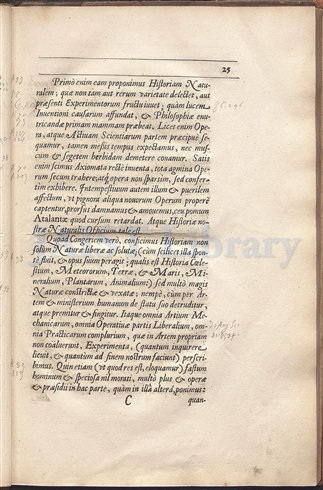 25
Primò enim eam proponimus Historiam Natu-
ralem; quæ non tam aut rerum varietate delectet, aut
præsenti Experimentorum fructu iuuet; quàm lucem
Inuentioni causarum affundat, & Philosophiæ enu-
tricandæ primam mammam præbeat. Licet enim Ope-
ra, atque Actiuam Scientiarum partem præcipuè se-
quamur, tamen messis tempus expectamus, nec mus-
cum & segetem herbidam demetere conamur. Satis
enim scimus Axiomata rectè inuenta, tota agmina Ope-
rum secum trahere; atq; opera non sparsim, sed confer-
tim exhibere. Intempestiuum autem illum & puerilem
affectum, vt pignora aliqua nouorum Operum properè
captentur, prorsus damnamus & amouemus, ceu pomum
Atalantæ quod cursum retardat. Atque Historiæ no-
stræ Naturalis Officium tale est.
Quoad Congeriem verò, conficimus Historiam non
solùm Naturæ liberæ ac solutæ (cùm scilicet illa spon-
tè fluit, & opus suum peragit; qualis est Historia Cœle-
stium, Meteororum, Terræ, & Maris, Mi-
neralium, Plantarum, Animalium:) sed multò magis
Naturæ constrictæ & vexatæ; nempè, cùm per Ar-
tem & ministerium humanum de statu suo detruditur,
atque premitur & fingitur. Itaque omnia Artium Me-
chanicarum, omnia Operatiuæ partis Liberalium, om-
nia Practicarum complurium, quæ in Artem propriam
non coaluerunt, Experimenta, (quantum inquirere
licuit, & quantùm ad finem nostrum faciunt) perscri-
bimus. Quin etiam (vt quod res est, eloquamur) fastum
hominum & speciosa nil morati, multò plus & operæ
& præsidii in hac parte, quàm in illâ alterâ, ponimus:
C
quan-